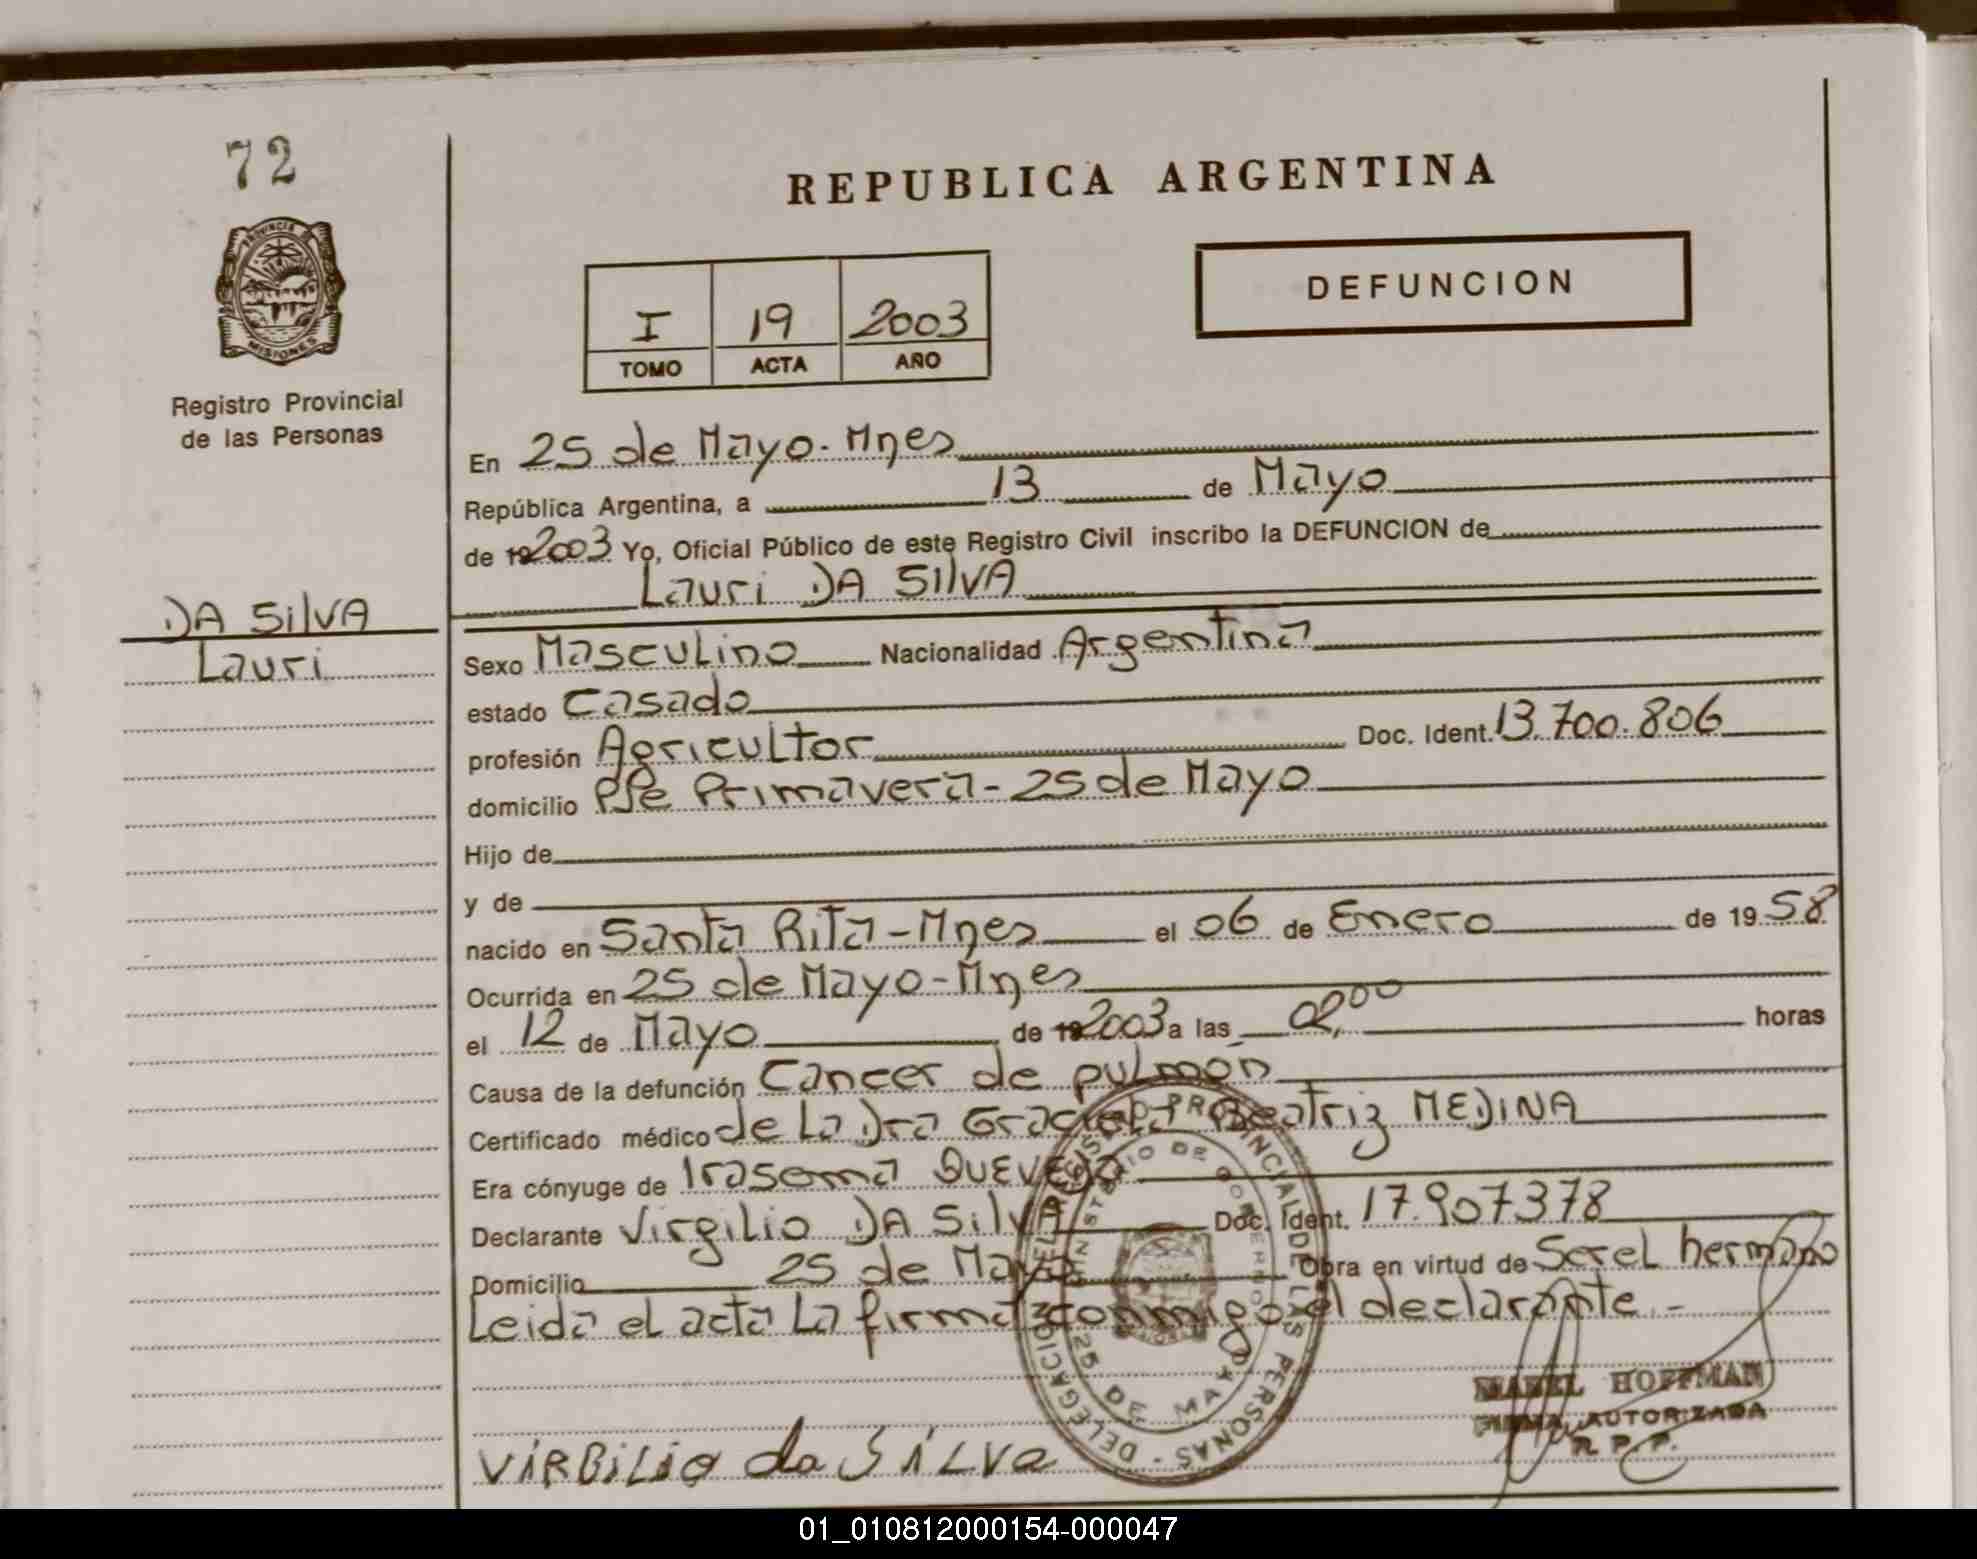 72
REPUBLICA ARGENTINA
PROVINCIA DE
MISIONES
Registro Provincial
de las Personas
I 19 2003
TOMO ACTA AÑO
DEFUNCION
En 25 de Mayo - Mnes
República Argentina, a 13 de Mayo
de 192003 Yo, Oficial Público de este Registro Civil inscribo la DEFUNCION de
Lauri DA SILVA
DA SilVA
Lauri
Sexo Masculino Nacionalidad Argentina
estado Casado
profesión Agricultor Doc. Ident. 13.700.806
domicilio Pje Primavera - 25 de Mayo
Hijo de
y de
nacido en Santa Rita - Mnes el 06 de Enero de 1958
Ocurrida en 25 de Mayo - Mnes
el 12 de Mayo de 192003 a las 02,00 horas
Causa de la defunción Cancer de pulmon
Certificado médico de La Dra Graciela Beatriz MEDINA
Era cónyuge de Irasema QUEVEDO
Declarante Virgilio DA SilVA Doc. Ident. 17.907378
Domicilio 25 de Mayo Obra en virtud de Ser el hermano
Leida el acta La firma conmigo el declarante -
REGISTRO PROVINCIAL DE LAS PERSONAS - DELEGACION
MINISTERIO DE GOBIERNO
25 DE MAYO
MABEL HOFFMAN
FIRMA AUTORIZADA
R. P. P.
VIRGILIO da SILVa
01_010812000154-000047